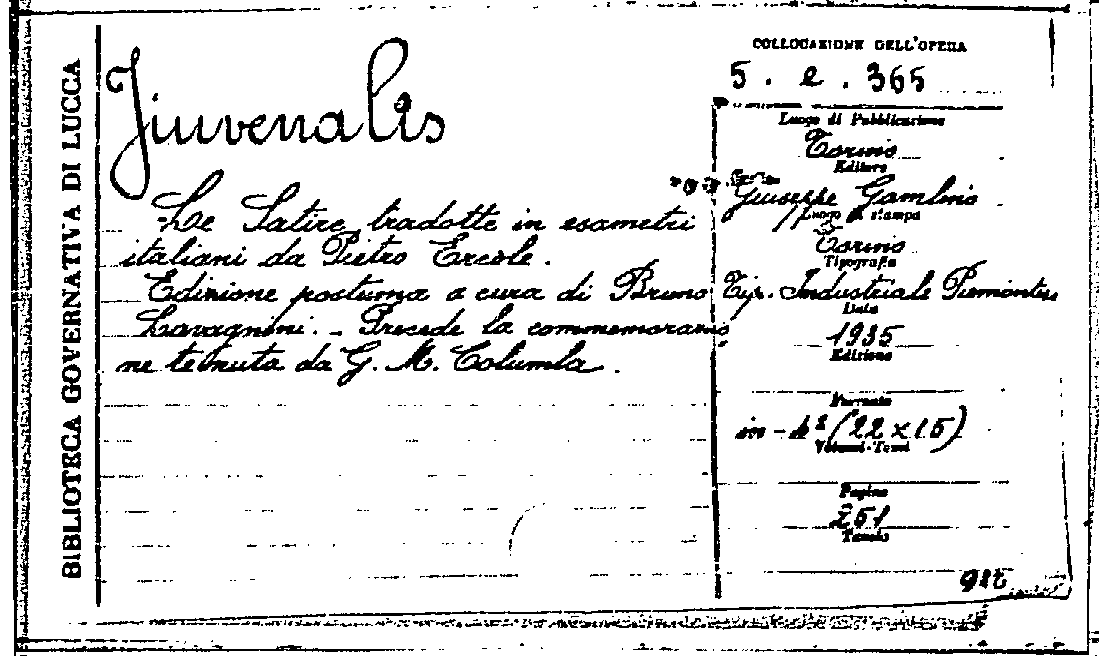 BIBLIOTECA GOVERNATIVA DI LUCCA
Jiuvenalis
Le Satire tradotte in esametri
italiani da Pietro Ercole.
Edizione postuma a cura di Bruno
Lavagnini. - Precede la commemorazio
ne tenuta da G. M. Columba.
COLLOCAZIONE DELL'OPERA
5. e. 365
Luogo di Pubblicazione
Torino
Editore
Giuseppe Gambino
Luogo di stampa
Torino
Tipografia
Tip. Industriale Piemontese
Data
1935
Edizione
Formato
in-4º (22x15)
Volumi-Tomi
Pagine
251
Tavole